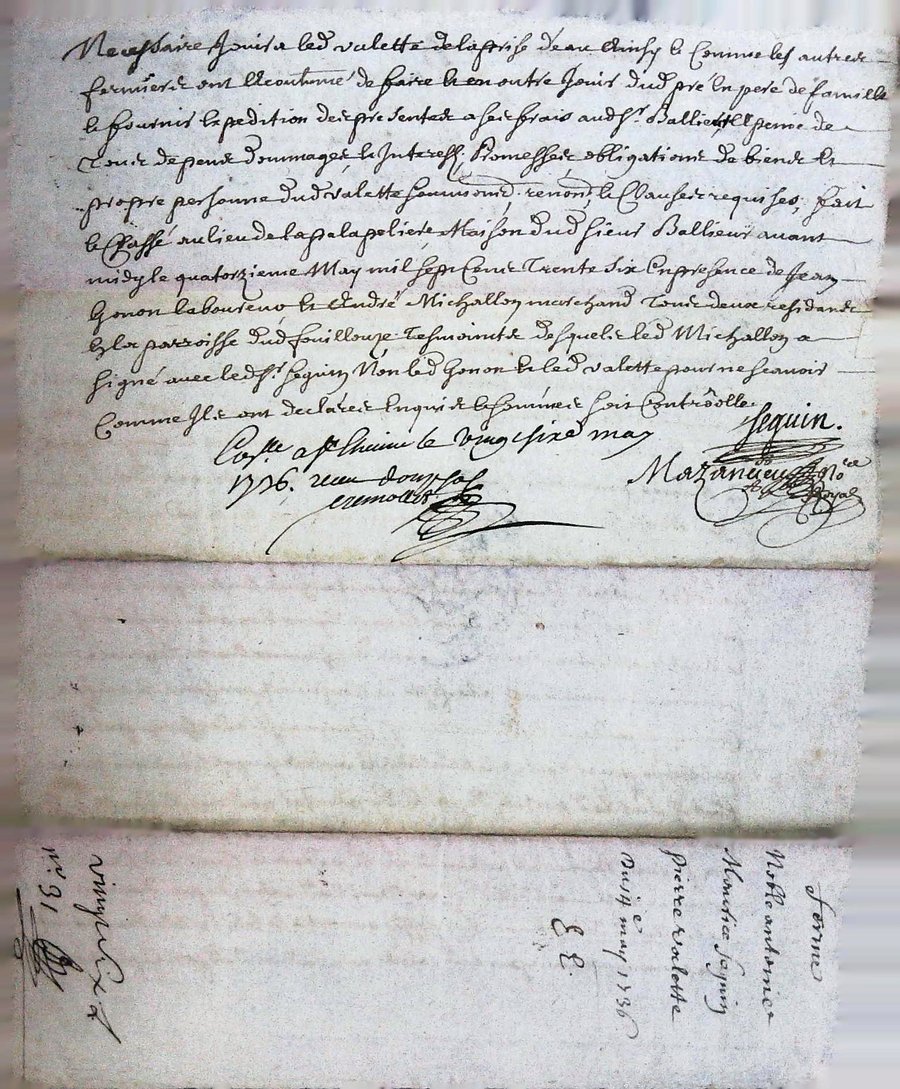 Necessaire Jouira led valette de la prise d'eau Ainsy le Comme les autres
fermiers ont Accoutumé de faire Et en outre Jouir dud pré En pere de famille
le fournir Expedition des presentes a ses frais aud Sr. Ballieu A peine de
Tous depens dommages Et Interests, Promesses obligations de biens Et
propre personne dud valette soumiond, renond, le Clauses requises, fait
le Passé au lieu de la palapeliere Maison dud sieur Ballieu avant
midy le quatorzieme May mil sept Cens Trente Six En presence de Jean
Gonon laboureur Et André Michallon marchand Tous deux residants
En la parroisse dud fouillouze Tesmoints desquels led Michallon a
signé avec led Sr. seguin Non led Gonon Et led valette pour ne scavoir
Comme Ils ont declarés Enquis le sommés soit Controollé
seguin.
Mazancieu No.re Royal
Co.lle a St Etienne le vingt sixe may
1736. receu douze sols
noble antoine
Maurice seguin
Pierre valette
Du 14e may 1736
E E.
vingt six
n.o 91